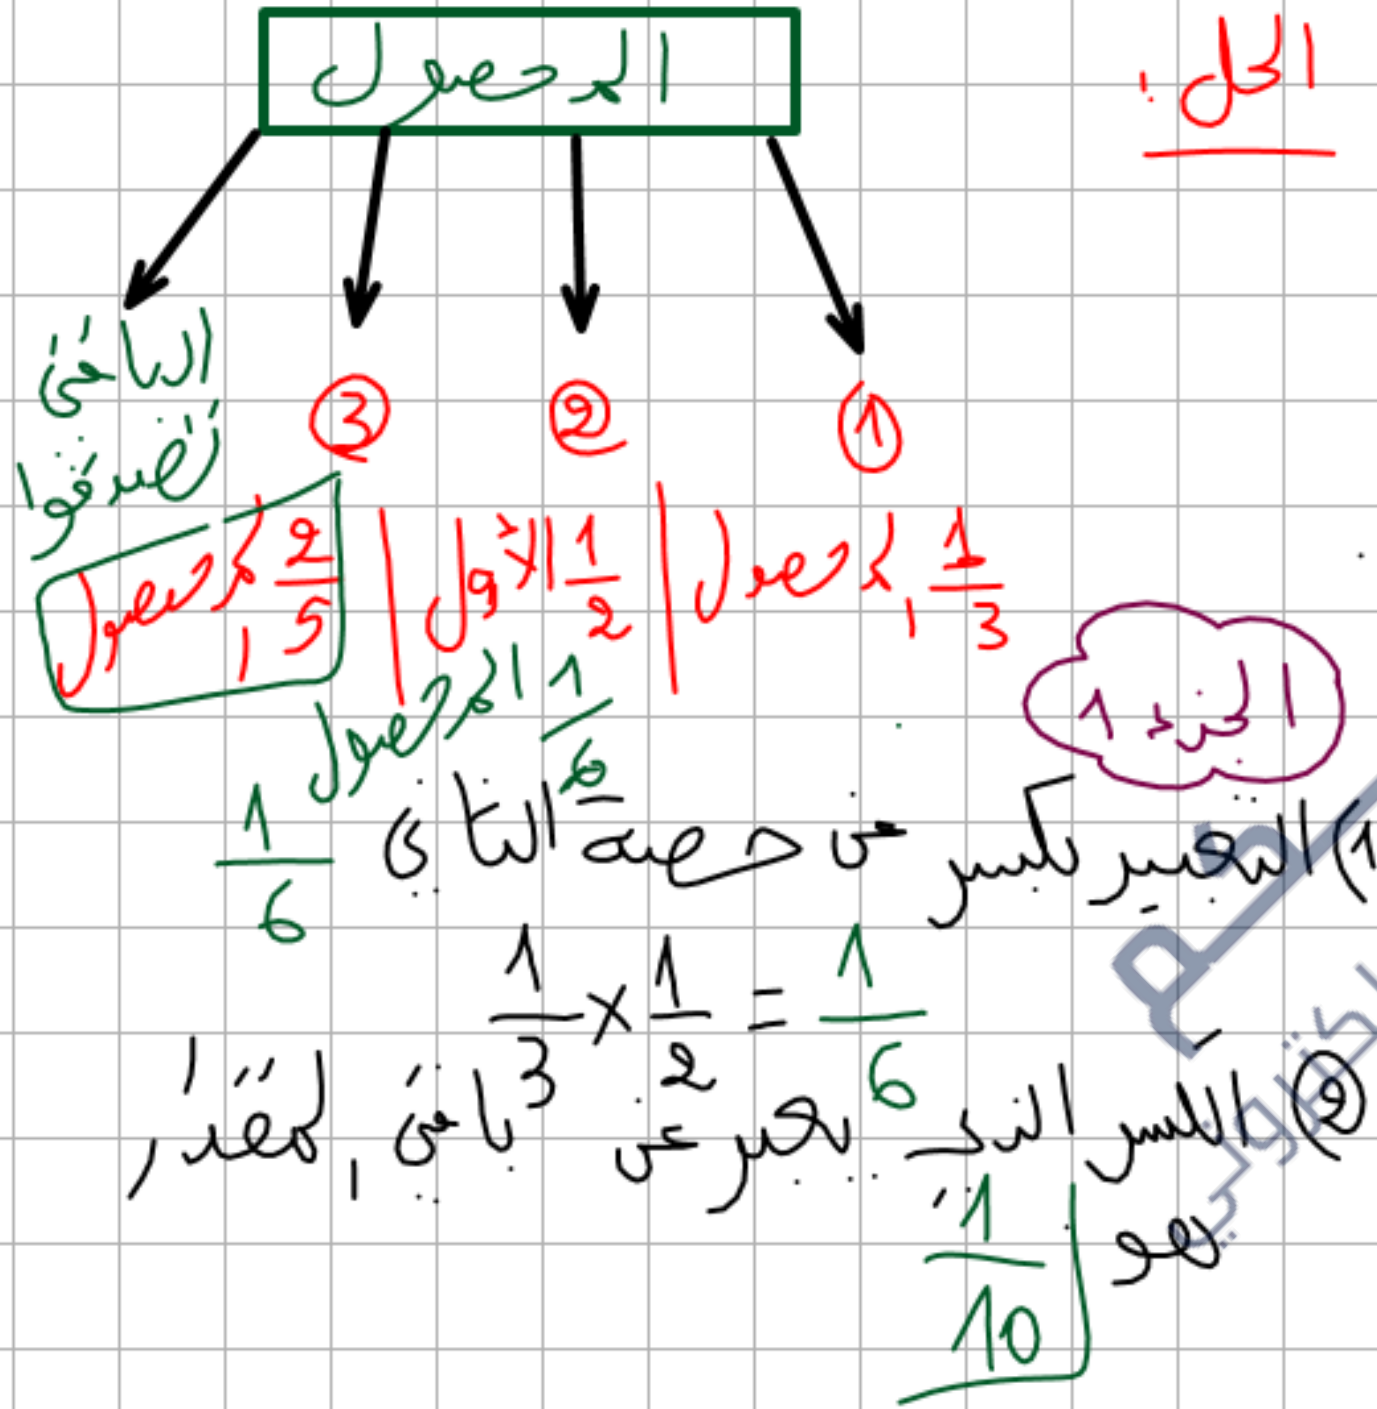 الحل:
المحصول
① ② ③ الباقي
تصدقوا
1/3 محصول | 1/2 الأول | 2/5 محصول
1/6 المحصول
الجزء 1
1) التعبير بكسر عن حصة الثاني 1/6
1/3 × 1/2 = 1/6
② الكسر الذي يعبر عن باقي المقدار
هو 1/10